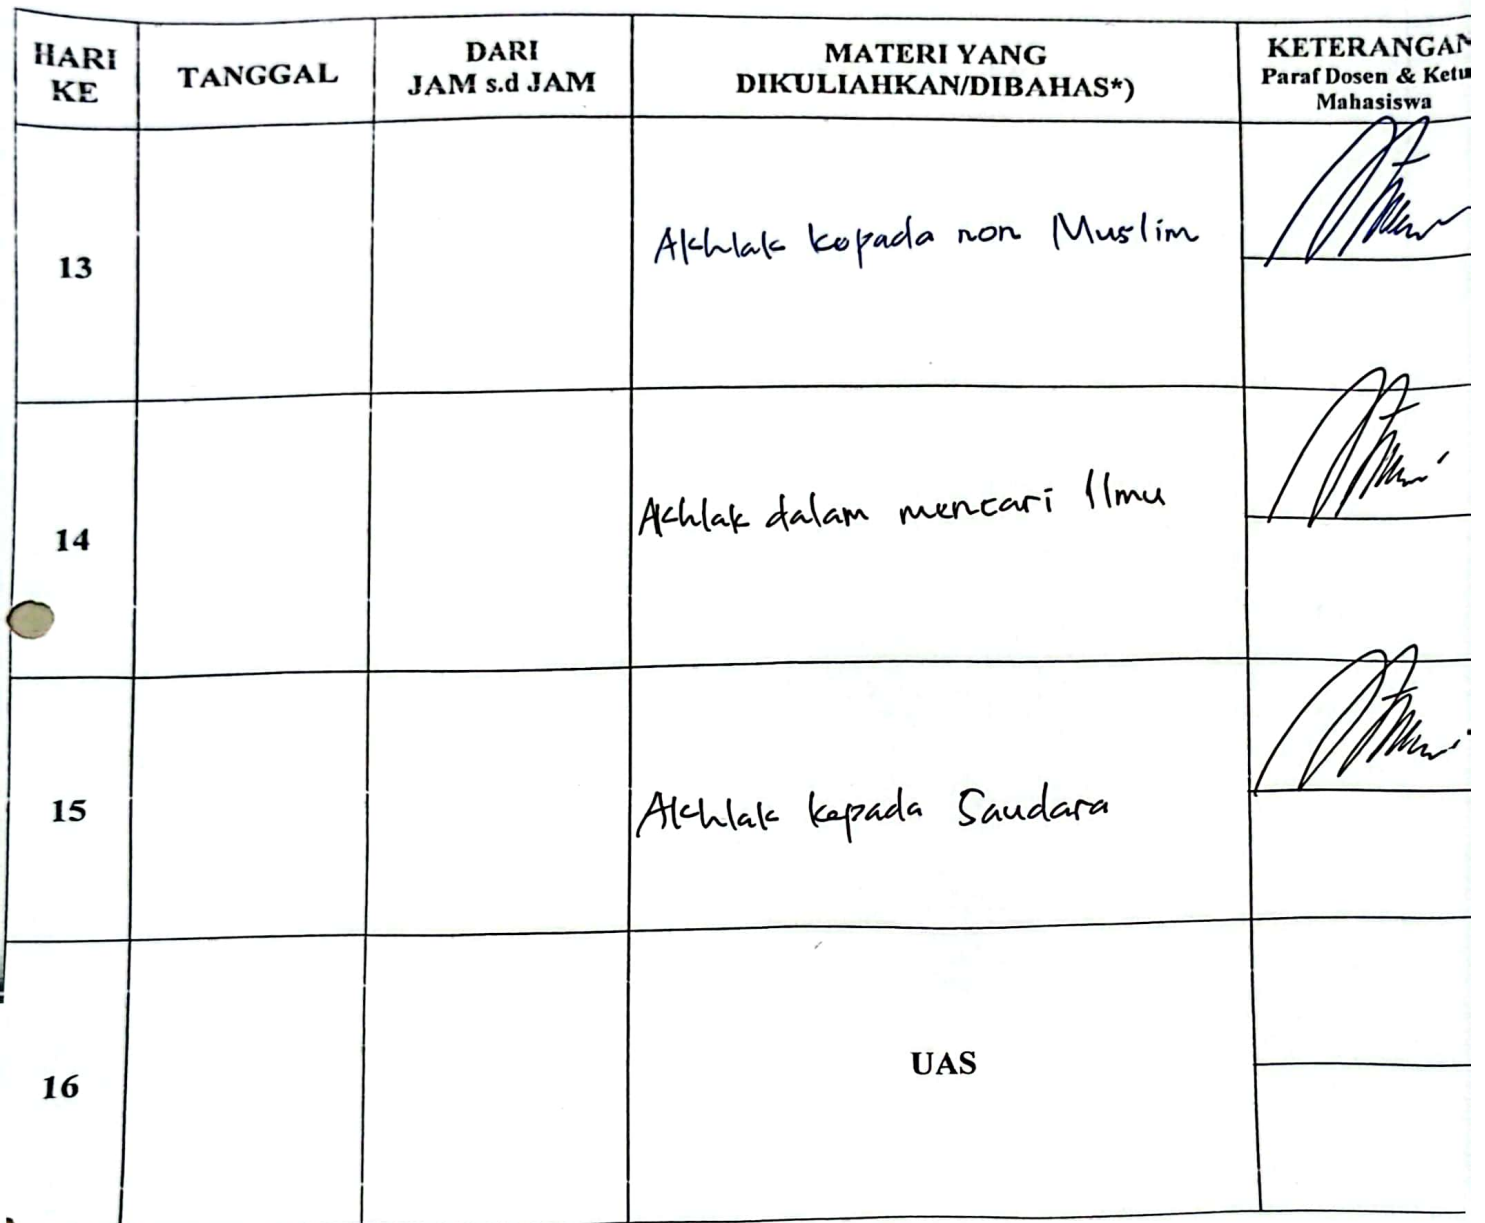 HARI KE
TANGGAL
DARI
JAM s.d JAM
MATERI YANG
DIKULIAHKAN/DIBAHAS*)
KETERANGAN
Paraf Dosen & Ketu
Mahasiswa
13
Akhlak kepada non Muslim
14
Akhlak dalam mencari Ilmu
15
Akhlak kepada Saudara
16
UAS